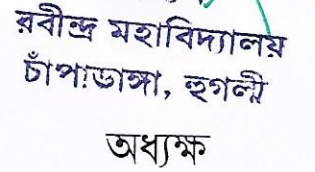 রবীন্দ্র মহাবিদ্যালয়
চাঁপাডাঙ্গা, হুগলী
অধ্যক্ষ